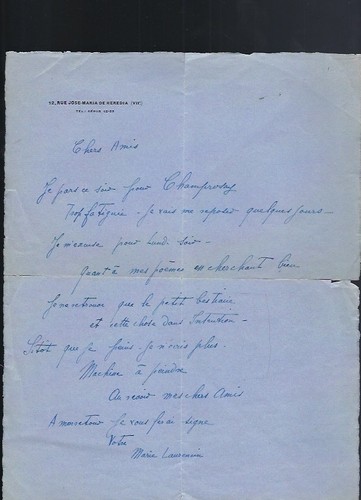 12, RUE JOSE-MARIA DE HEREDIA (VIIe)
TEL.: SÉGUR
Chers Amis
Je pars ce soir pour Champrosay
Trop fatiguée - Je vais me reposer quelques jours -
Je m'excuse pour lundi soir -
Quant à mes poèmes en cherchant bien
Je ne retrouve que le petit bestiaire
et cette chose dans Intention -
Sitôt que je finis je n'ai plus.
Machine à peindre
Au revoir mes chers Amis
A mon retour je vous ferai signe
Votre
Marie Laurencin